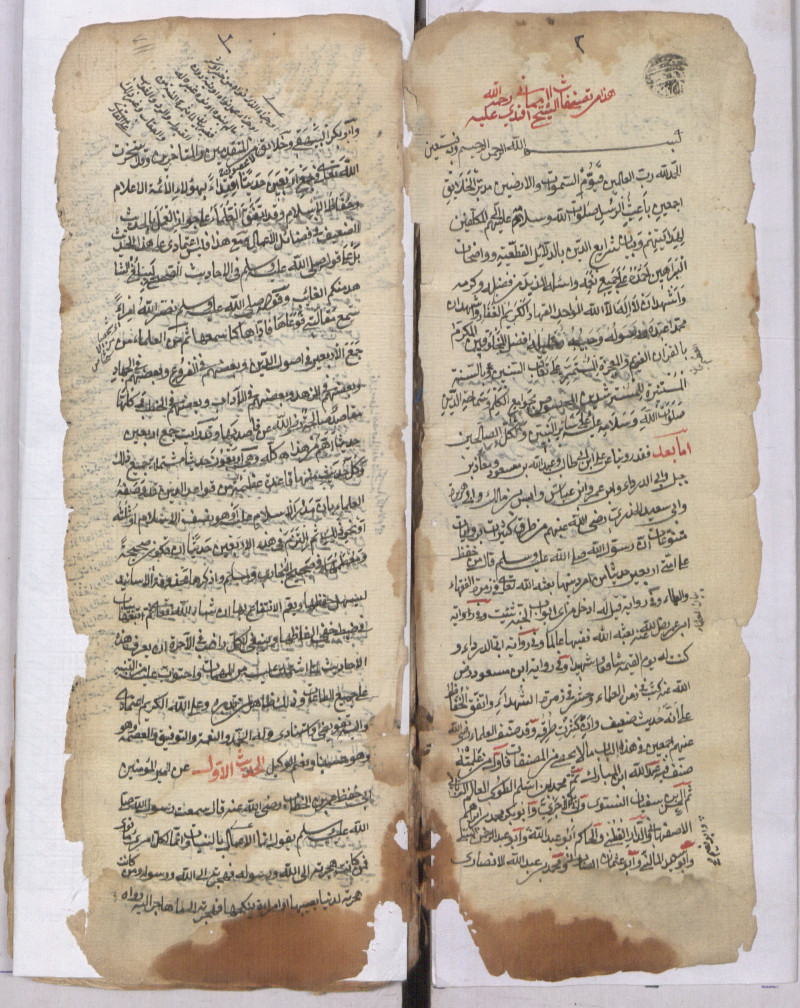 ٢
هذا من تصنيفات الشيخ
افندي رحمة الله عليه
بسم الله الرحمن الرحيم وبه نستعين
الحمد لله رب العالمين قيوم السموات والارضين مدبر الخلائق
اجمعين باعث الرسل صلوات الله وسلامه عليهم الى المكلفين
لهدايتهم وبيان شرايع الدين بالدلائل القطعية وواضحات
البراهين احمده على جميع نعمه واسأله المزيد من فضله وكرمه
واشهد ان لا اله الا الله الواحد القهار الكريم الغفار واشهد ان
محمدا عبده ورسوله وحبيبه وخليله افضل المخلوقين المكرم
بالقرآن العزيز المعجزة المستمرة على تعاقب السنين وبالسنن
المستنيرة للمسترشدين المخصوص بجوامع الكلم وسماحة الدين
صلوات الله وسلامه عليه وعلى سائر النبيين و كل وسائر الصالحين
اما بعد فقد روينا عن علي ابن ابي طالب وعبد الله بن مسعود ومعاذ بن
جبل وابي الدرداء وابن عمر وابن عباس وانس بن مالك وابي هريرة
وابي سعيد الخدري رضي الله عنهم من طرق كثيرات بروايات
متنوعات ان رسول الله صلى الله عليه وسلم قال من حفظ
على امتي اربعين حديثا من امر دينها بعثه الله تعالى في زمرة الفقهاء
والعلماء وفي رواية قيل له ادخل من اي ابواب الجنة شئت وفي رواية
بعثه الله فقيها عالما وفي رواية ابي الدرداء و
كنت له يوم القيمة شافعا وشهيدا وفي رواية ابن مسعود رضي
الله عنه كتب في زمرة العلماء وحشر في زمرة الشهداء واتفق الحفاظ
على انه حديث ضعيف وان كثرت طرقه وقد صنف العلماء رضي الله
عنهم اجمعين في هذا الباب ما لا يحصى من المصنفات فاول من علمته
صنف فيه عبد الله ابن المبارك ثم محمد بن اسلم الطوسي العالم الرباني
ثم الحسن بن سفيان النسوي وابو بكر الاجري وابو بكر محمد بن ابراهيم
الاصفهاني والدارقطني والحاكم وابو عبد الله وابو عبد الرحمن السلمي
وابو سعيد الماليني وابو عثمان الصابوني ومحمد بن عبد الله الانصاري
٣
وابو بكر البيهقي وخلايق من المتقدمين والمتأخرين وقد استخرت
الله تعالى في جمع اربعين حديثا اقتداء بهؤلاء الائمة الاعلام
وحفاظ الاسلام وقد اتفق العلماء على جواز العمل بالحديث
الضعيف في فضائل الاعمال ومع هذا فليس اعتمادي على هذا الحديث
بل على قوله صلى الله عليه وسلم في الاحاديث الصحيحة ليبلغ الشا
هد منكم الغائب وقوله صلى الله عليه وسلم نضر الله امرءا
سمع مقالتي فوعاها فاداها كما سمعها ثم من العلماء من
جمع الاربعين في اصول الدين وبعضهم في الفروع وبعضهم في الجهاد
وبعضهم في الزهد وبعضهم في الآداب وبعضهم في الخطب وكلها
مقاصد صالحة رضي الله عن قاصديها وقد رأيت جمع اربعين
حديثا اهم من هذا كله وهي اربعون حديثا مشتملة على جميع ذلك
وكل حديث منها قاعدة عظيمة من قواعد الدين قد وصفه
العلماء بان مدار الاسلام عليه او هو نصف الاسلام او ثلثه
او نحو ذلك ثم التزم في هذه الاربعين حديثا ان تكون صحيحة
ومعظمها في صحيح البخاري ومسلم واذكرها محذوفة الاسانيد
ليسهل حفظها ويعم الانتفاع بها ان شاء الله تعالى ثم اتبعها
بباب في ضبط خفي الفاظها وينبغي لكل راغب في الآخرة ان يعرف هذه
الاحاديث لما اشتملت عليه من المهمات واحتوت عليه من التنبيه
على جميع الطاعات وذلك ظاهر لمن تدبره وعلى الله الكريم اعتمادي
واليه تفويضي واستنادي وله الحمد والنعمة وبه التوفيق والعصمة وهو
وهو حسبنا ونعم الوكيل الحديث الاول عن امير المؤمنين
ابي حفص عمر بن الخطاب رضي الله عنه قال سمعت رسول الله صلى
الله عليه وسلم يقول انما الاعمال بالنيات وانما لكل امرئ ما نوى
فمن كانت هجرته الى الله ورسوله فهجرته الى الله ورسوله ومن كانت
هجرته لدنيا يصيبها او امرأة ينكحها فهجرته الى ما هاجر اليه رواه